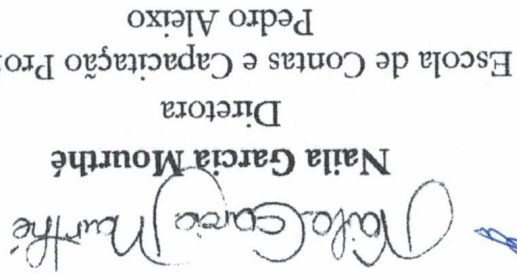 Naila Garcia Mourthé
Naila Garcia Mourthé
Diretora
Escola de Contas e Capacitação
Pedro Aleixo